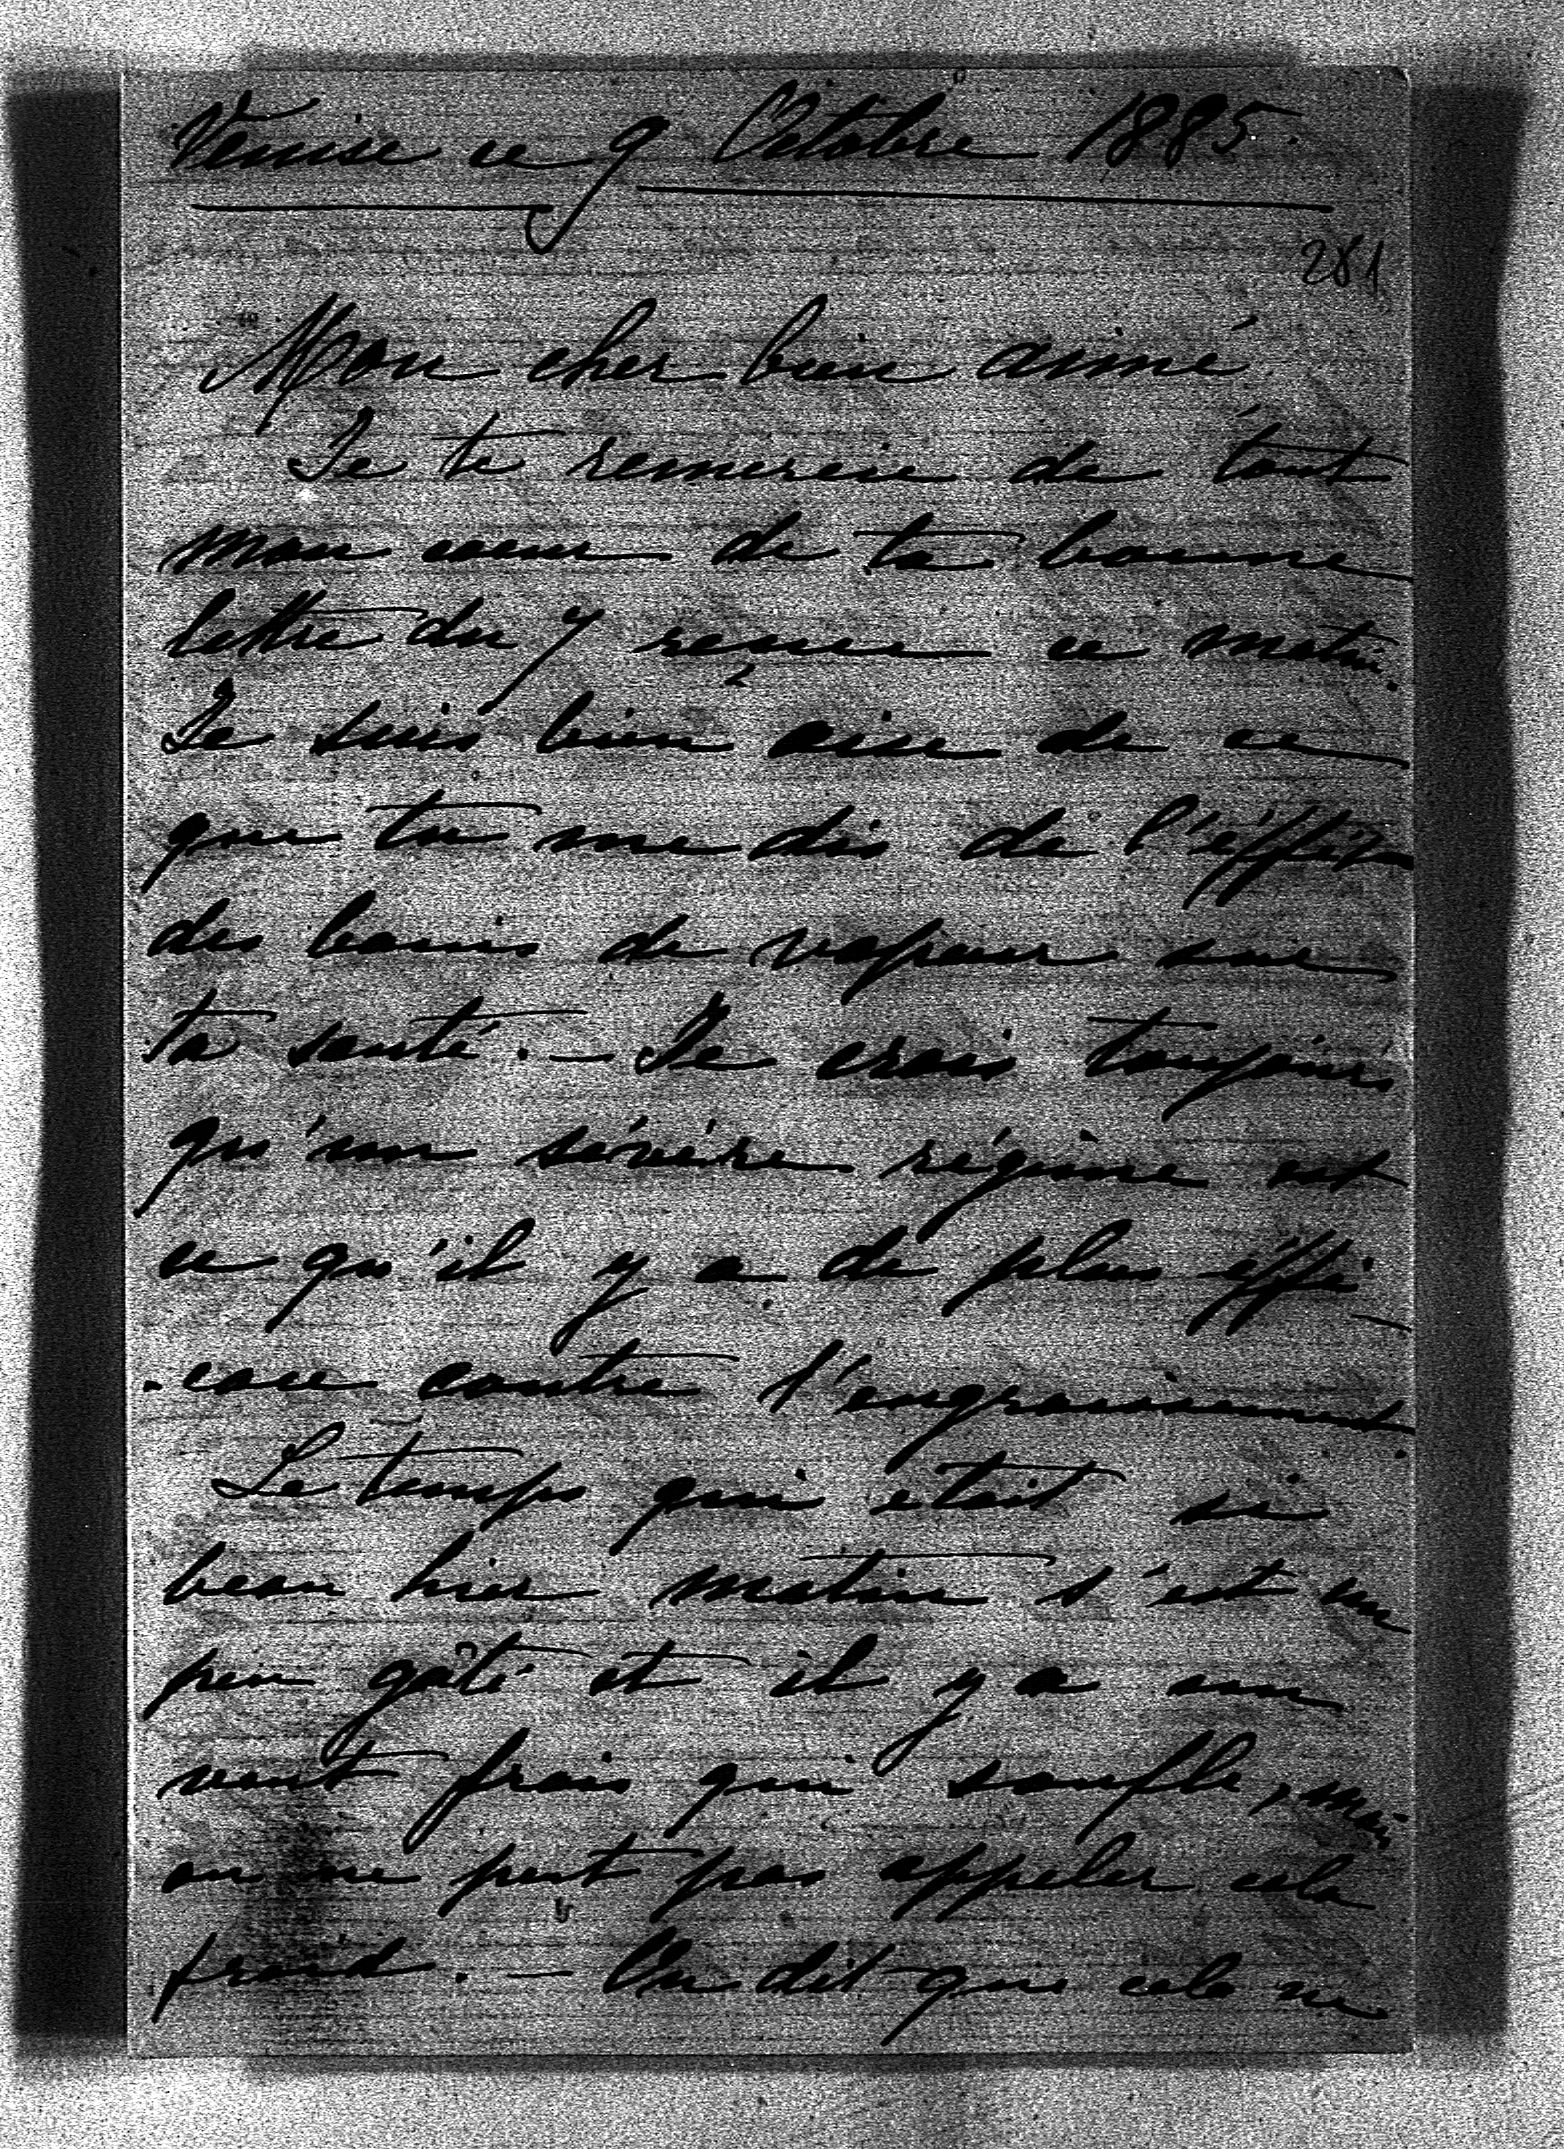 Venise ce 9 Octobre 1885.
281
Mon cher bien aimé,
Je te remercie de tout
mon coeur de ta bonne
lettre du 7 reçue ce matin.
Je suis bien aise de ce
que tu me dis de l'éffet
des bains de vapeur sur
ta santé. — Je crois toujours
qu'un sévère régime est
ce qu'il y a de plus éffi-
-cace contre l'engraissement.
Le temps qui était si
beau hier matin s'est un
peu gâté et il y a un
vent frais qui soufle, mais
on ne peut pas appeler cela
froid. — On dit que cela ne